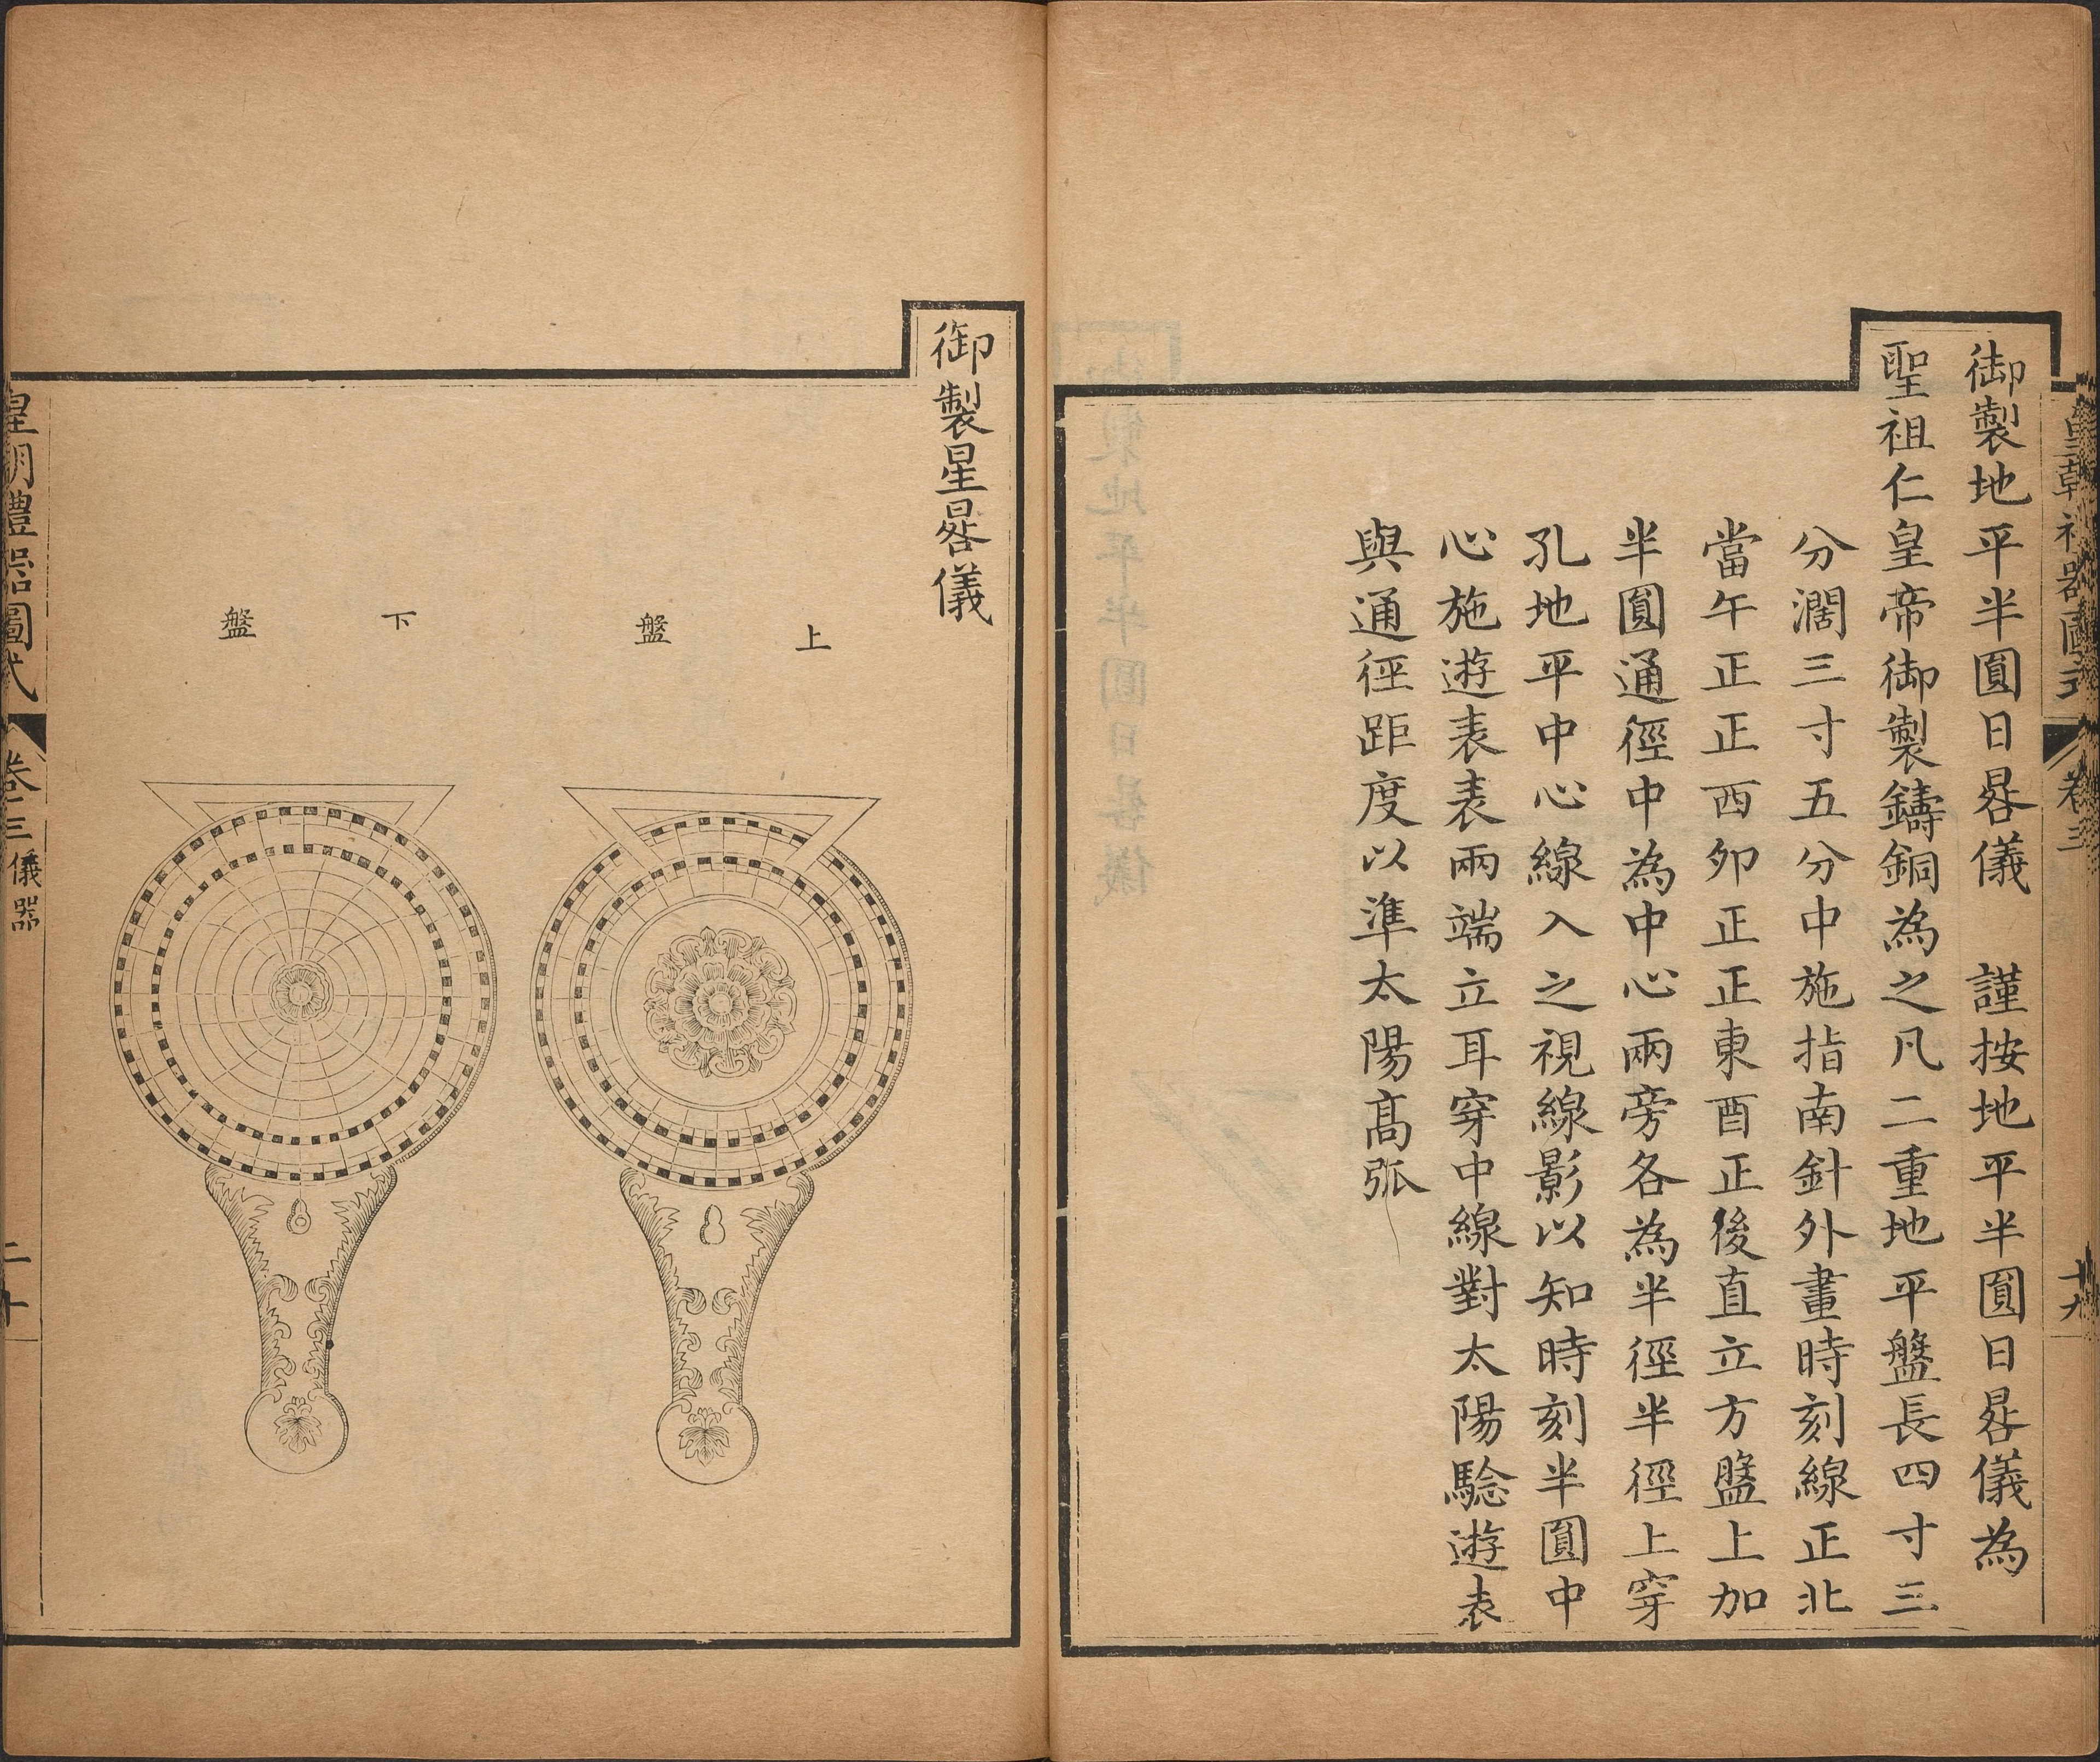 皇朝禮器圖式 卷三 十九
御製地平半圓日晷儀 謹按地平半圓日晷儀為
聖祖仁皇帝御製鑄銅為之凡二重地平盤長四寸三
分濶三寸五分中施指南針外畫時刻線正北
當午正正西卯正正東酉正後直立方盤上加
半圓通徑中為中心兩旁各為半徑半徑上穿
孔地平中心線入之視線影以知時刻半圓中
心施遊表表兩端立耳穿中線對太陽驗遊表
與通徑距度以準太陽高弧
御製星晷儀
上盤
下盤
皇朝禮器圖式 卷三 儀器 二十